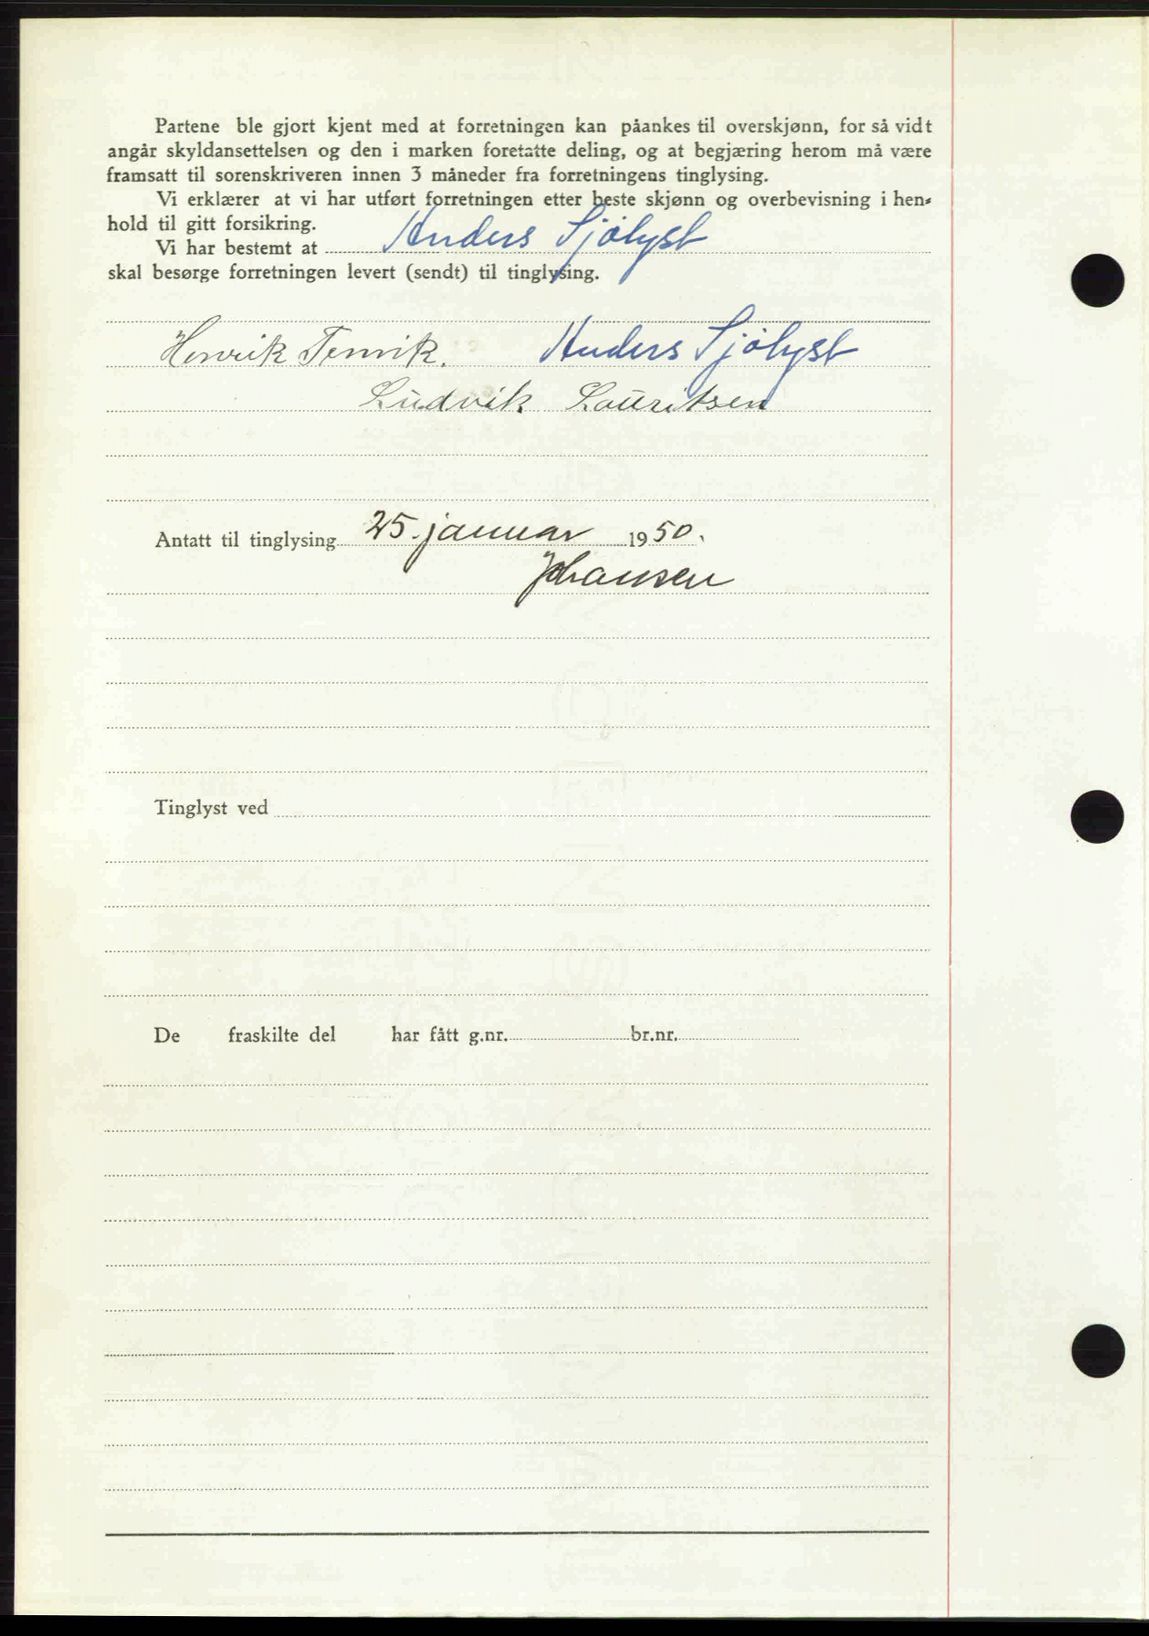 Partene ble gjort kjent med at forretningen kan påankes til overskjønn, for så vidt
angår skyldansettelsen og den i marken foretatte deling, og at begjæring herom må være
framsatt til sorenskriveren innen 3 måneder fra forretningens tinglysing.
Vi erklærer at vi har utført forretningen etter beste skjønn og overbevisning i hen-
hold til gitt forsikring.
Vi har bestemt at Anders Sjölyst
skal besørge forretningen levert (sendt) til tinglysing.
Henrik Anders Sjölyst
Ludvik Lauritsen
Antatt til tinglysing 25. januar 1950.
Johansen
Tinglyst ved
De fraskilte del har fått g.nr. br.nr.